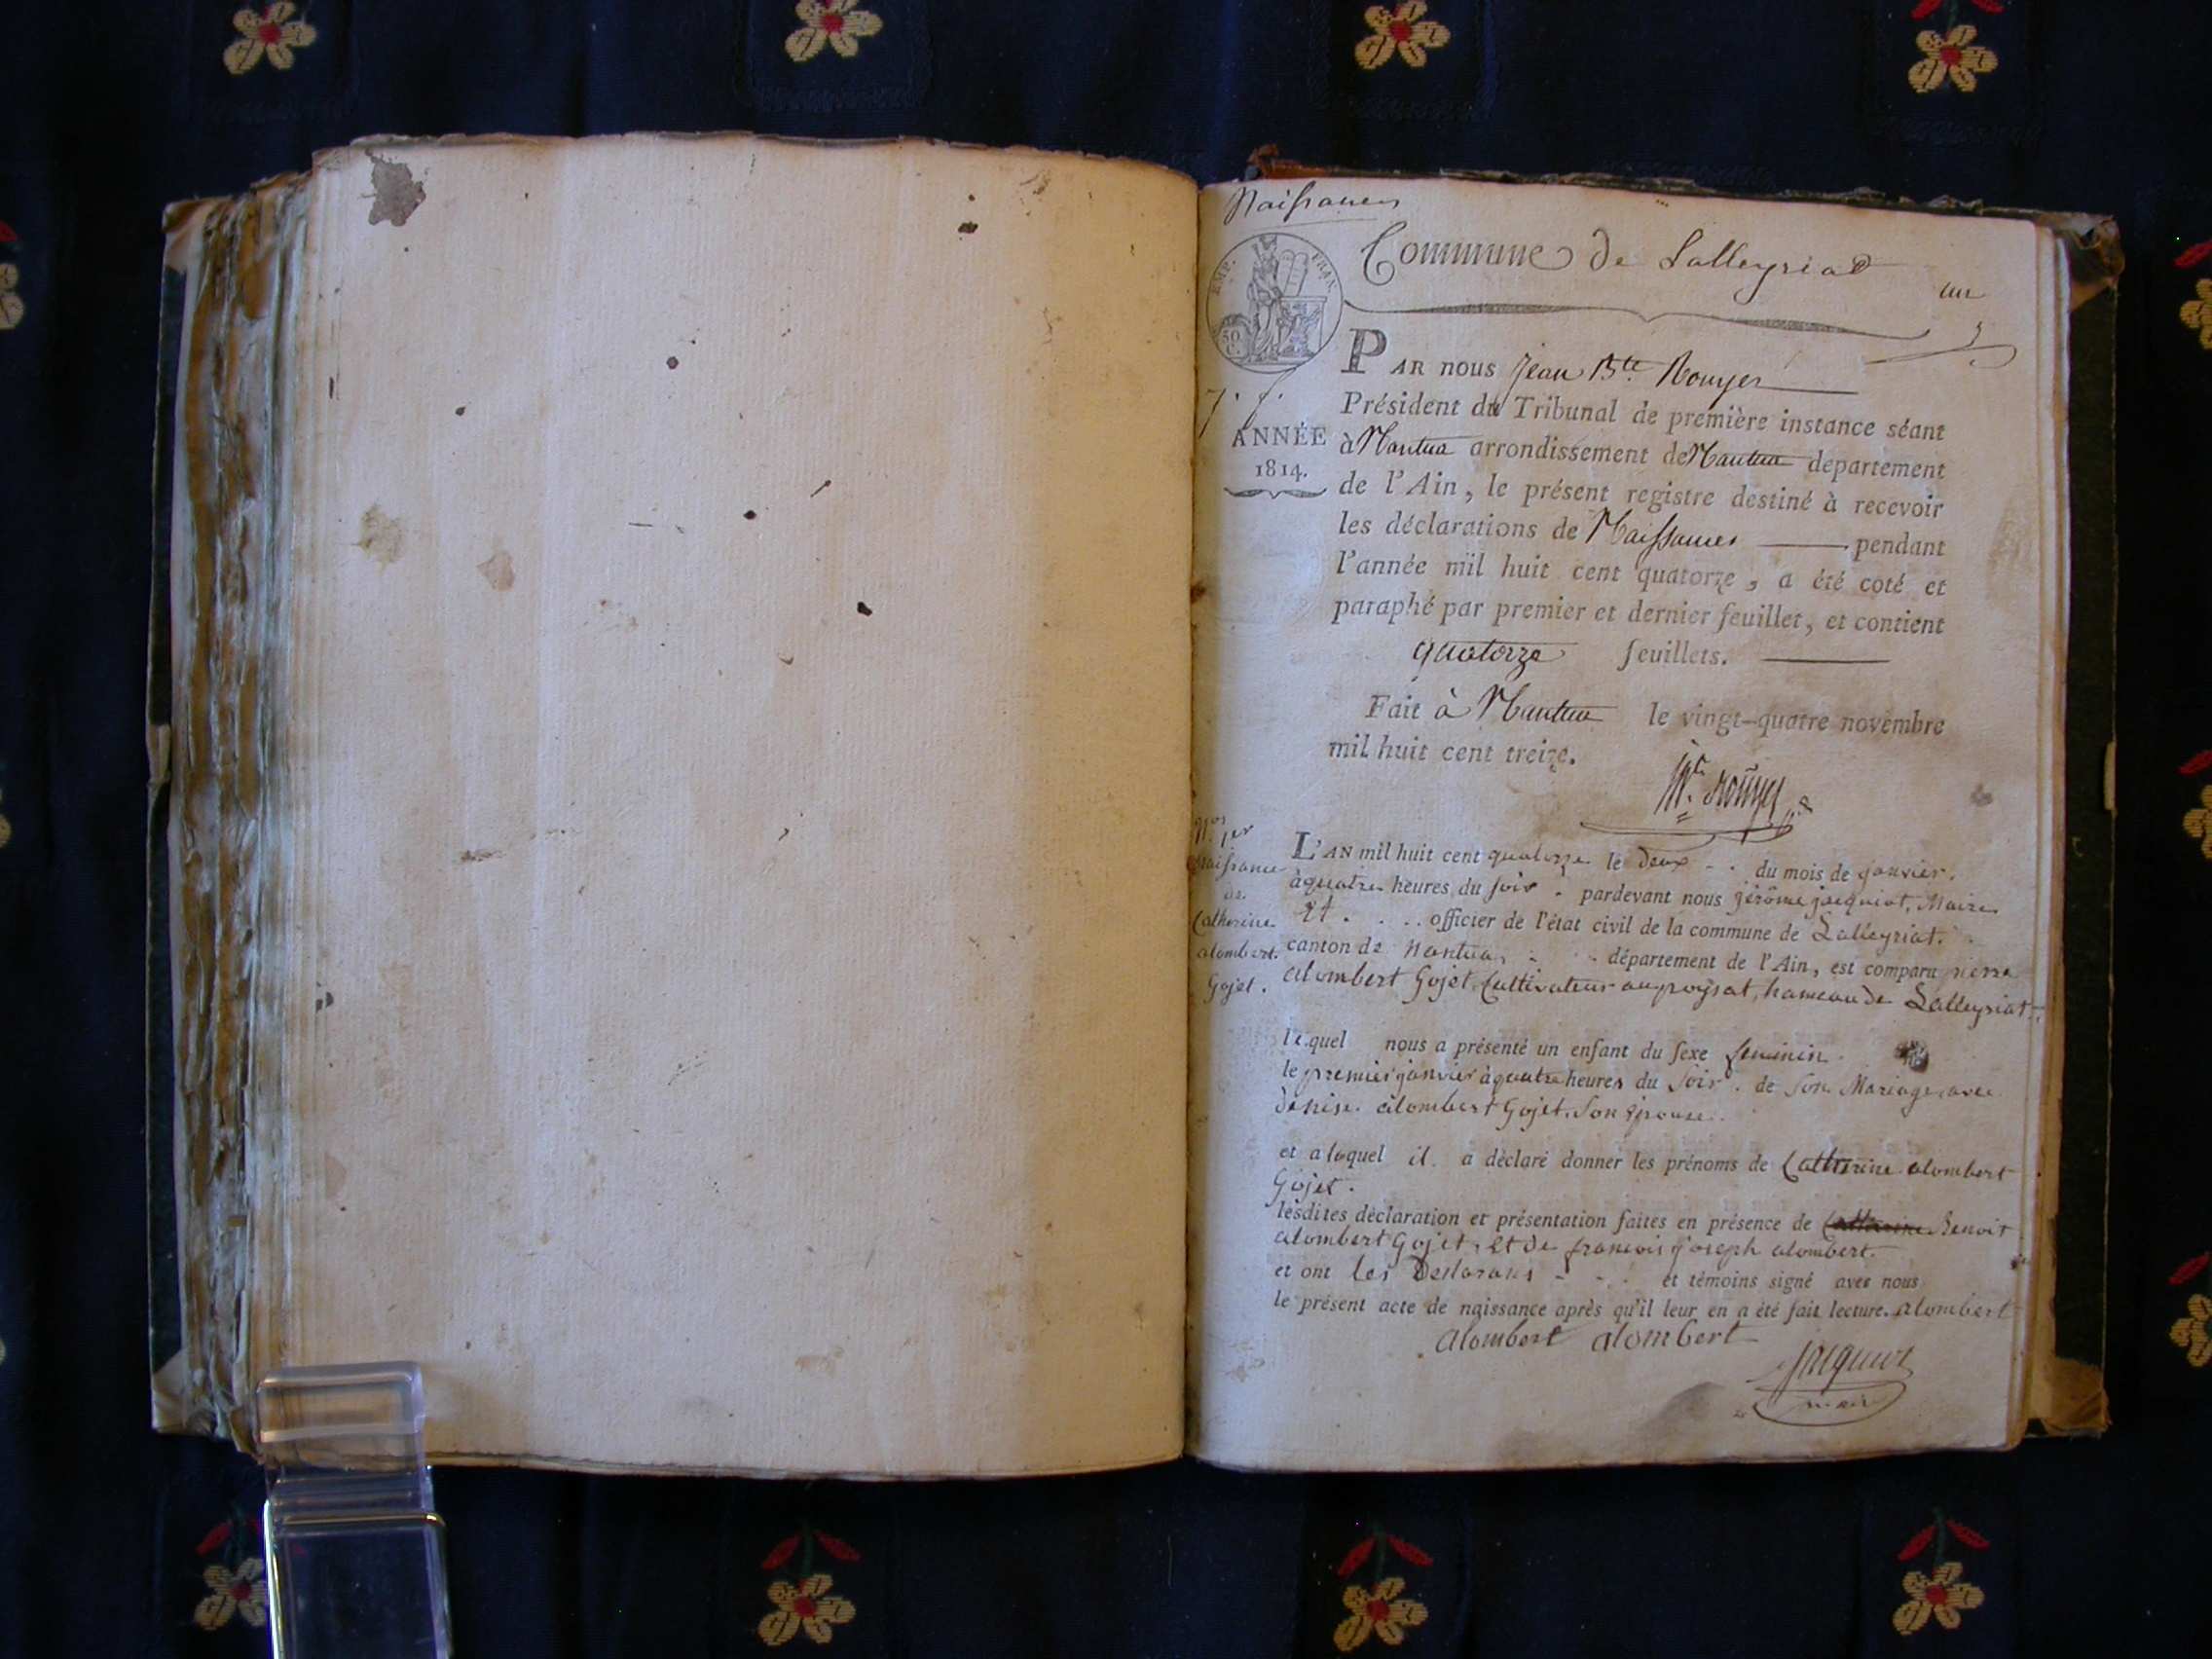 Naissances
Commune de Lalleyriat
un
EMP. FRAN.
50 C.
PAR nous Jean Bte. Rouyer
Président du Tribunal de première instance séant
ANNÉE
1814.
à Nantua arrondissement de Nantua departement
de l'Ain, le présent registre destiné à recevoir
les déclarations de Naissances pendant
l'année mil huit cent quatorze, a été coté et
paraphé par premier et dernier feuillet, et contient
quatorze feuillets.
Fait à Nantua le vingt-quatre novembre
mil huit cent treize.
Rouyer
1er
Naissance
de
Catherine
alombert.
Gojet.
L'AN mil huit cent quatorze le deux du mois de janvier.
à quatre heures du soir pardevant nous jérôme jacquiot, Maire
et officier de l'état civil de la commune de Lalleyriat.
canton de nantua département de l'Ain, est comparu pierre
alombert Gojet, Cultivateur au poysat, hameau de Lalleyriat.
lequel nous a présenté un enfant du sexe feminin
le premier janvier à quatre heures du soir. de son Mariage avec
denise alombert Gojet, son épouse.
et a loquel il a déclaré donner les prénoms de Catherine alombert
Gojet.
lesdites déclaration et présentation faites en présence de Catherine Benoit
alombert Gojet, et de francois joseph alombert.
et ont les Declarans et témoins signé avec nous
le présent acte de naissance après qu'il leur en a été fait lecture. alombert
alombert alombert
jacquiot
maire